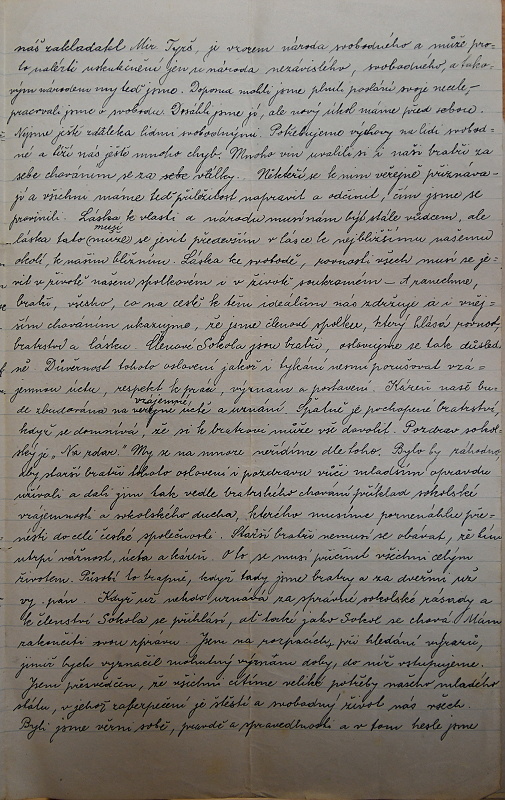 náš zakladatel Mir. Tyrš, je vzorem národa svobodného a může pro-
to nalézti uskutečnění jen u národa nezávislého, svobodného, a tako-
vým národem my teď jsme. Doposud mohli jsme plniti poslání svoje necele,-
pracovali jsme o svobodu. Dosáhli jsme jí, ale nový úkol máme před sebou.
Nejsme ještě zdaleka lidmi svobodnými. Potřebujeme výchovy na lidi svobod-
né a tíží nás ještě mnoho chyb. Mnoho vin uvalili si i naši bratři za
sebe chováním se za války. Někteří se k nim veřejně přiznáva-
jí a všichni máme teď příležitost napravit a odčinit, čím jsme se
provinili. Láska k vlasti a národu musí nám býti stále vůdcem, ale
láska tato (může) musí se jevit především v lásce k nejbližšímu našemu
okolí, k našim bližním. Láska ke svobodě, rovnosti všech musí se je-
vit v životě našem spolkovém i v životě soukromém – A zanechme,
bratři, všeho, co na cestě k těm ideálům nás zdržuje a i vněj-
ším chováním ukazujme, že jsme členové spolku, který hlásá rovnost,
bratrství a lásku. Členové Sokola jsou bratři, oslovujme se tak důsled-
ně. Důvěrnost tohoto oslovení jakož i tykání nesmí porušovat vzá-
jemnou úctu, respekt k práci, významu a postavení. Kázeň naše bu-
de zbudována na vzájemné úctě a uznání. Špatně je pochopené bratrství,
když se domnívá, že si k bratrovi může vše dovolit. Pozdrav sokol-
ský je „Na zdar." My se na mnoze neřídíme dle toho. Bylo by záhodno,
aby starší bratři tohoto oslovení i pozdravu vůči mladším opravdu
užívali a dali jim tak vedle bratrského chování příklad sokolské
vzájemnosti a sokolského ducha, kterého musíme poznenáhlu pře-
nésti do celé české společnosti. Starší bratři nemusí se obávat, že tím
utrpí vážnost, úcta a kázeň. O to se musí přičinit všichni celým
životem. Působí to trapně, když tady jsme bratry a za dveřmi už
vy, pán. Když už někdo uznává za správné sokolské zásady a
k členství Sokola se přihlásí, ať také jako Sokol se chová. Mám
zakončiti svou zprávu. Jsem na rozpacích, při hledání výrazů,
jimiž bych vyznačil mohutný význam doby, do níž vstupujeme.
Jsem přesvědčen, že všichni cítíme veliké potřeby našeho mladého
státu, v jehož zabezpečení je štěstí a svobodný život nás všech.
Byli jsme věrni sobě, pravdě a spravedlnosti a v tom hesle jsme